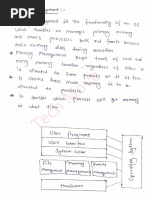 management :-
management is the functionality of an OS
which handles or manages primary memory
and moves processes back and forth between
main memory disks during execution
* Memory Management keeps track of each and
every memory location, regardless of either it
is allocated to some process or it is
free.
* It decides which process will get memory
at what time.
User
User Interface
System calls
File management
memory management
process management
Hardware
Operating System